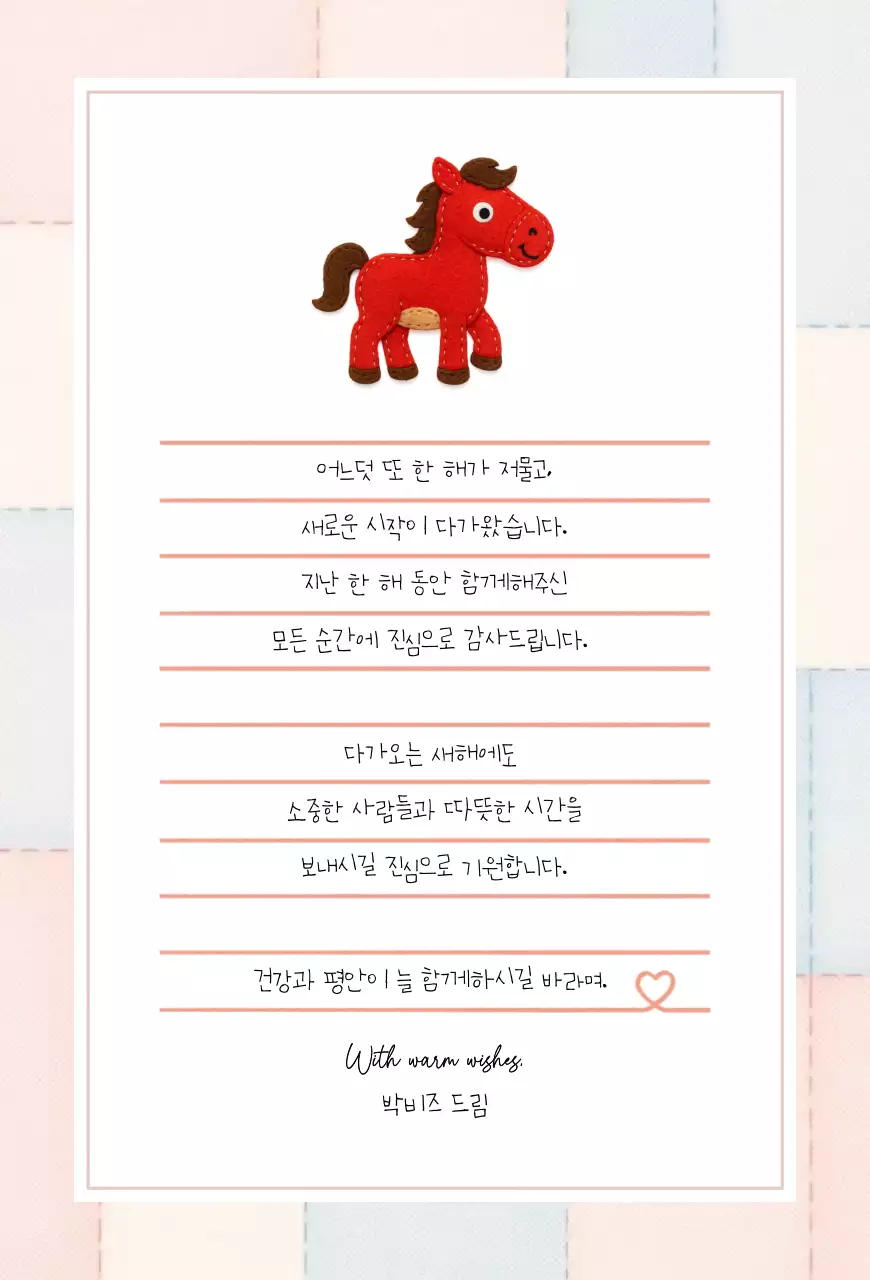 어느덧 또 한 해가 저물고,
새로운 시작이 다가왔습니다.
지난 한 해 동안 함께해주신
모든 순간에 진심으로 감사드립니다.
다가오는 새해에도
소중한 사람들과 따뜻한 시간을
보내시길 진심으로 기원합니다.
건강과 평안이 늘 함께하시길 바라며.
With warm wishes,
박비즈 드림